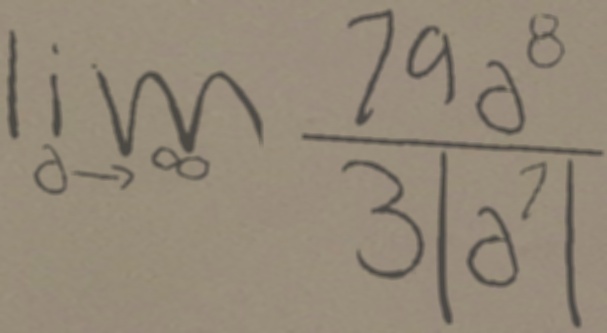 lim_{a→∞} \frac{79a^8}{3|a^7|}